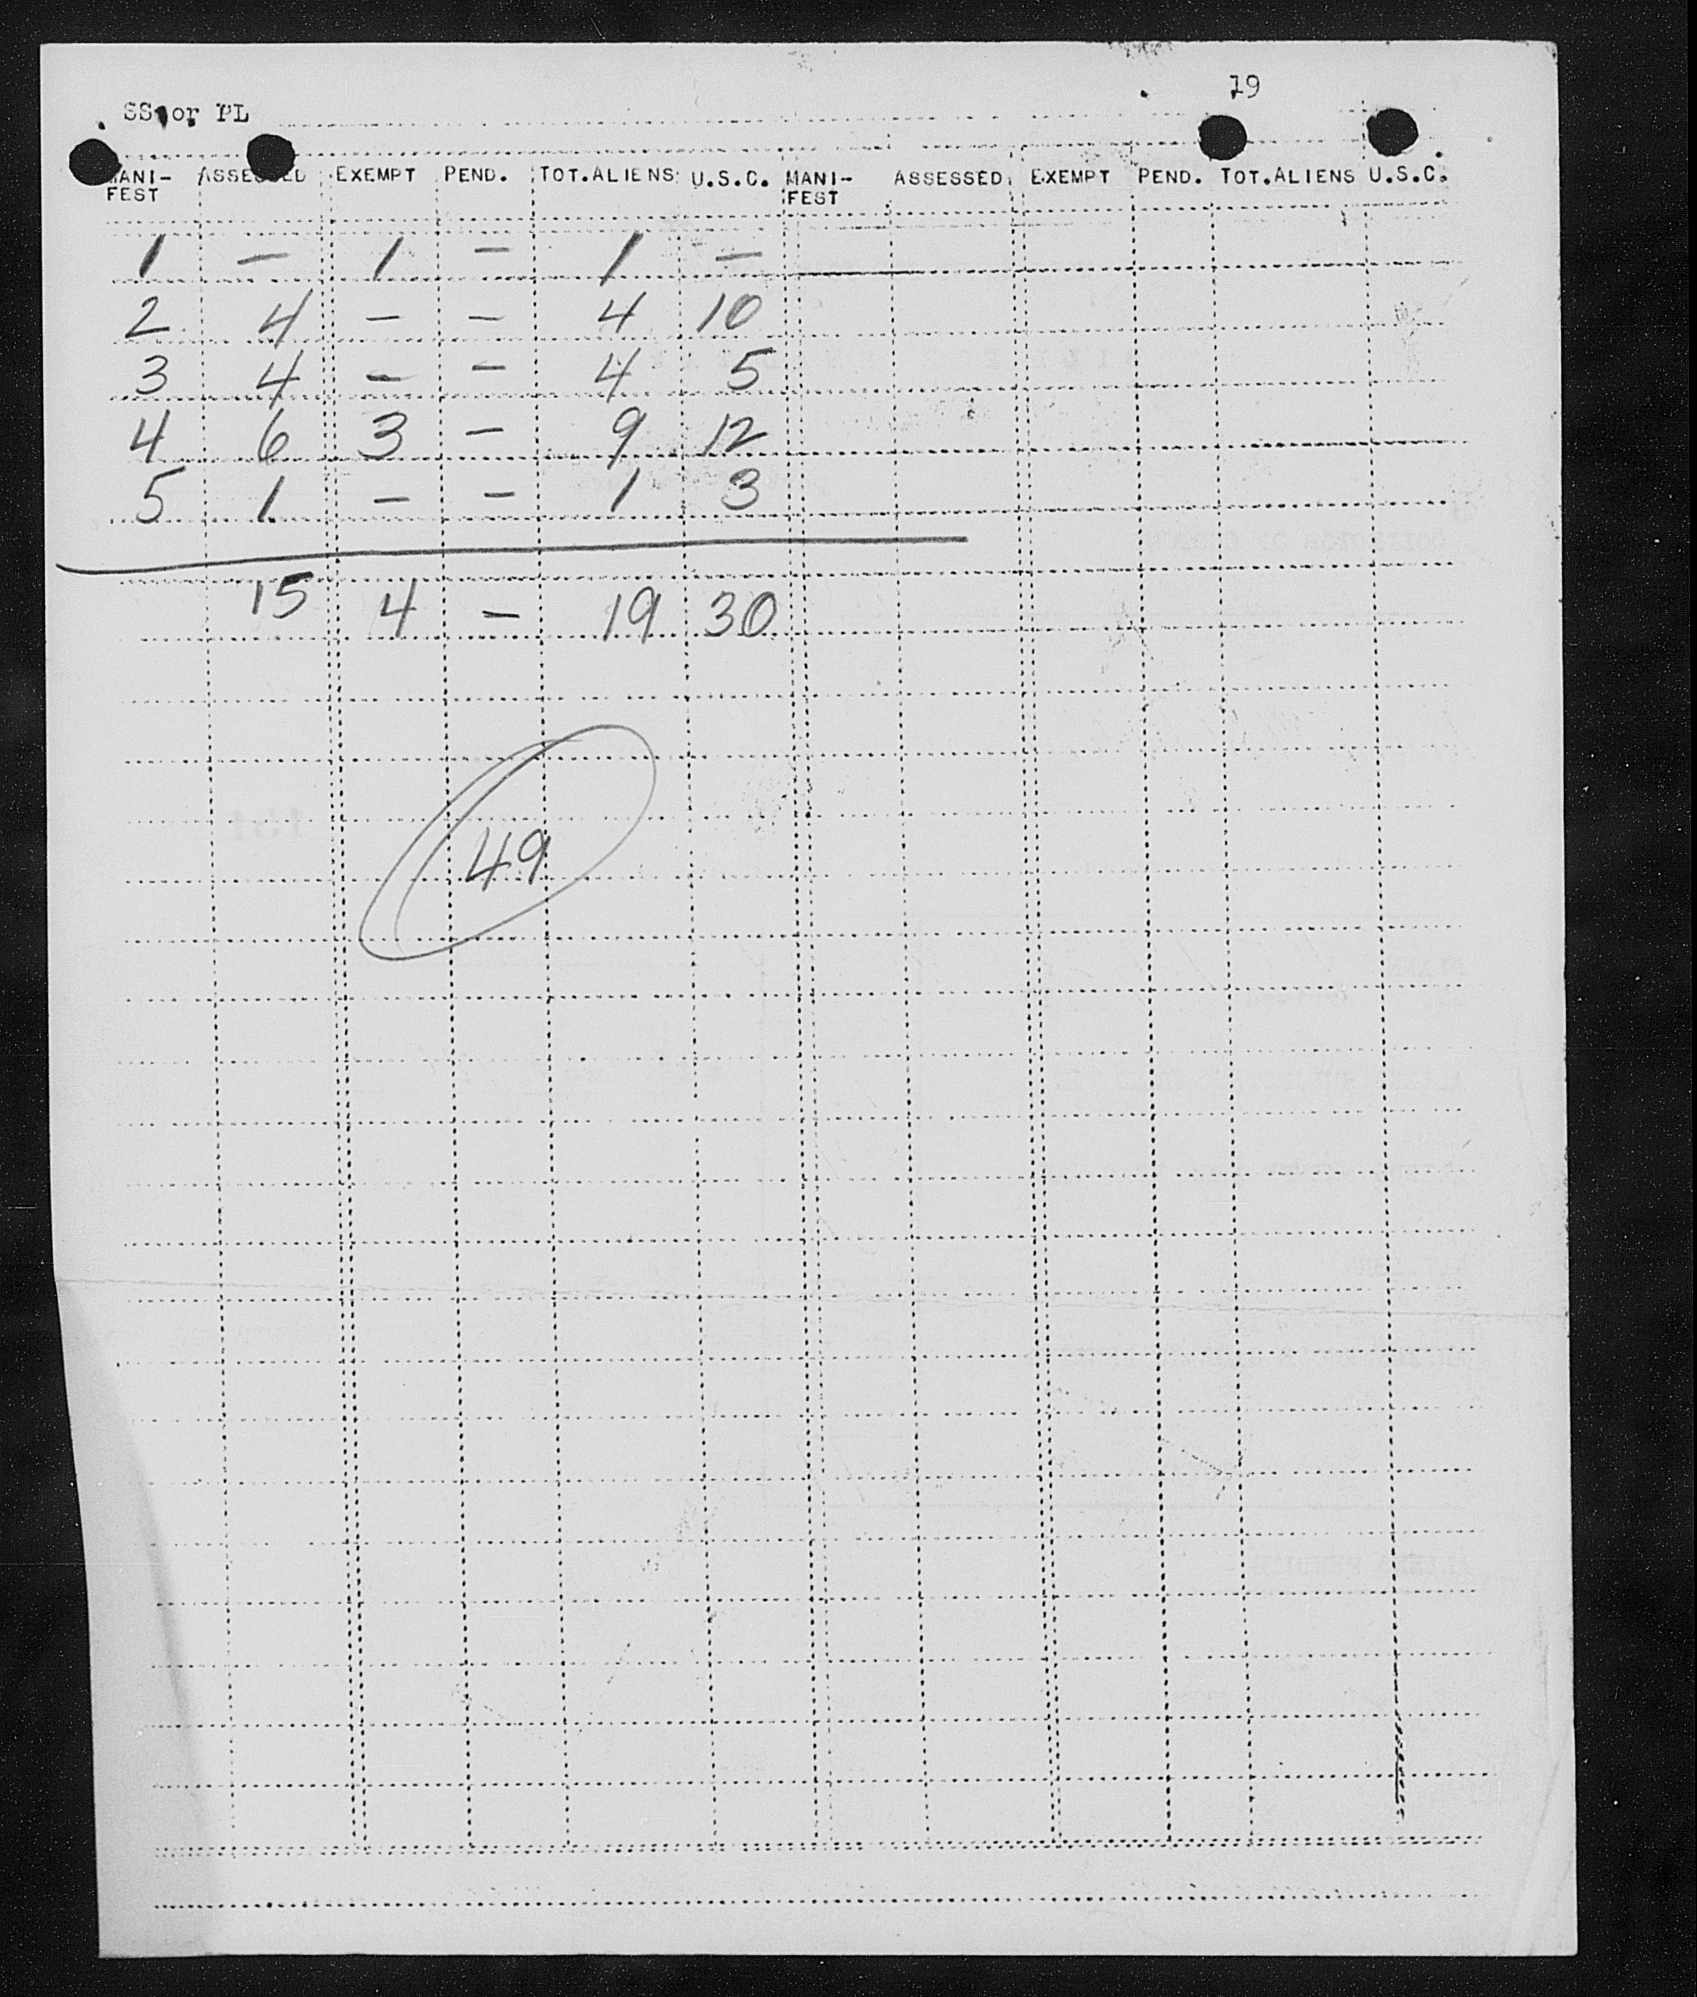 19
SS or PL
MANI- ASSESSED EXEMPT PEND. TOT.ALIENS U.S.C. MANI- ASSESSED EXEMPT PEND. TOT.ALIENS U.S.C.
FEST FEST
1 — 1 — 1 —
2 4 — — 4 10
3 4 — — 4 5
4 6 3 — 9 12
5 1 — — 1 3
15 4 — 19 30
49